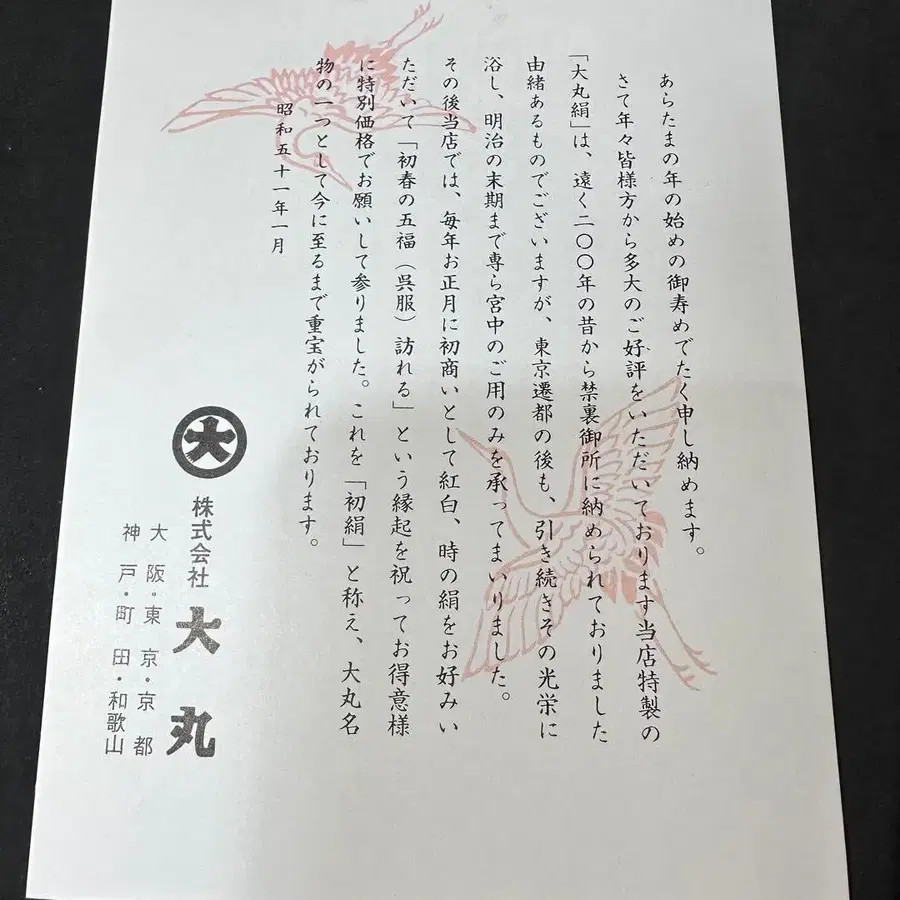 あらたまの年の始めの御寿めでたく申し納めます。
さて年々皆様方から多大のご好評をいただいております当店特製の
「大丸絹」は、遠く二〇〇年の昔から禁裏御所に納められておりました
由緒あるものでございますが、東京遷都の後も、引き続きその光栄に
浴し、明治の末期まで専ら宮中のご用のみを承ってまいりました。
その後当店では、毎年お正月に初商いとして紅白、時の絹をお好みい
ただいて「初春の五福（呉服）訪れる」という縁起を祝ってお得意様
に特別価格でお願いして参りました。これを「初絹」と称え、大丸名
物の一つとして今に至るまで重宝がられております。
昭和五十一年一月
大
株式会社 大丸
大阪・東京・京都
神戸・町田・和歌山